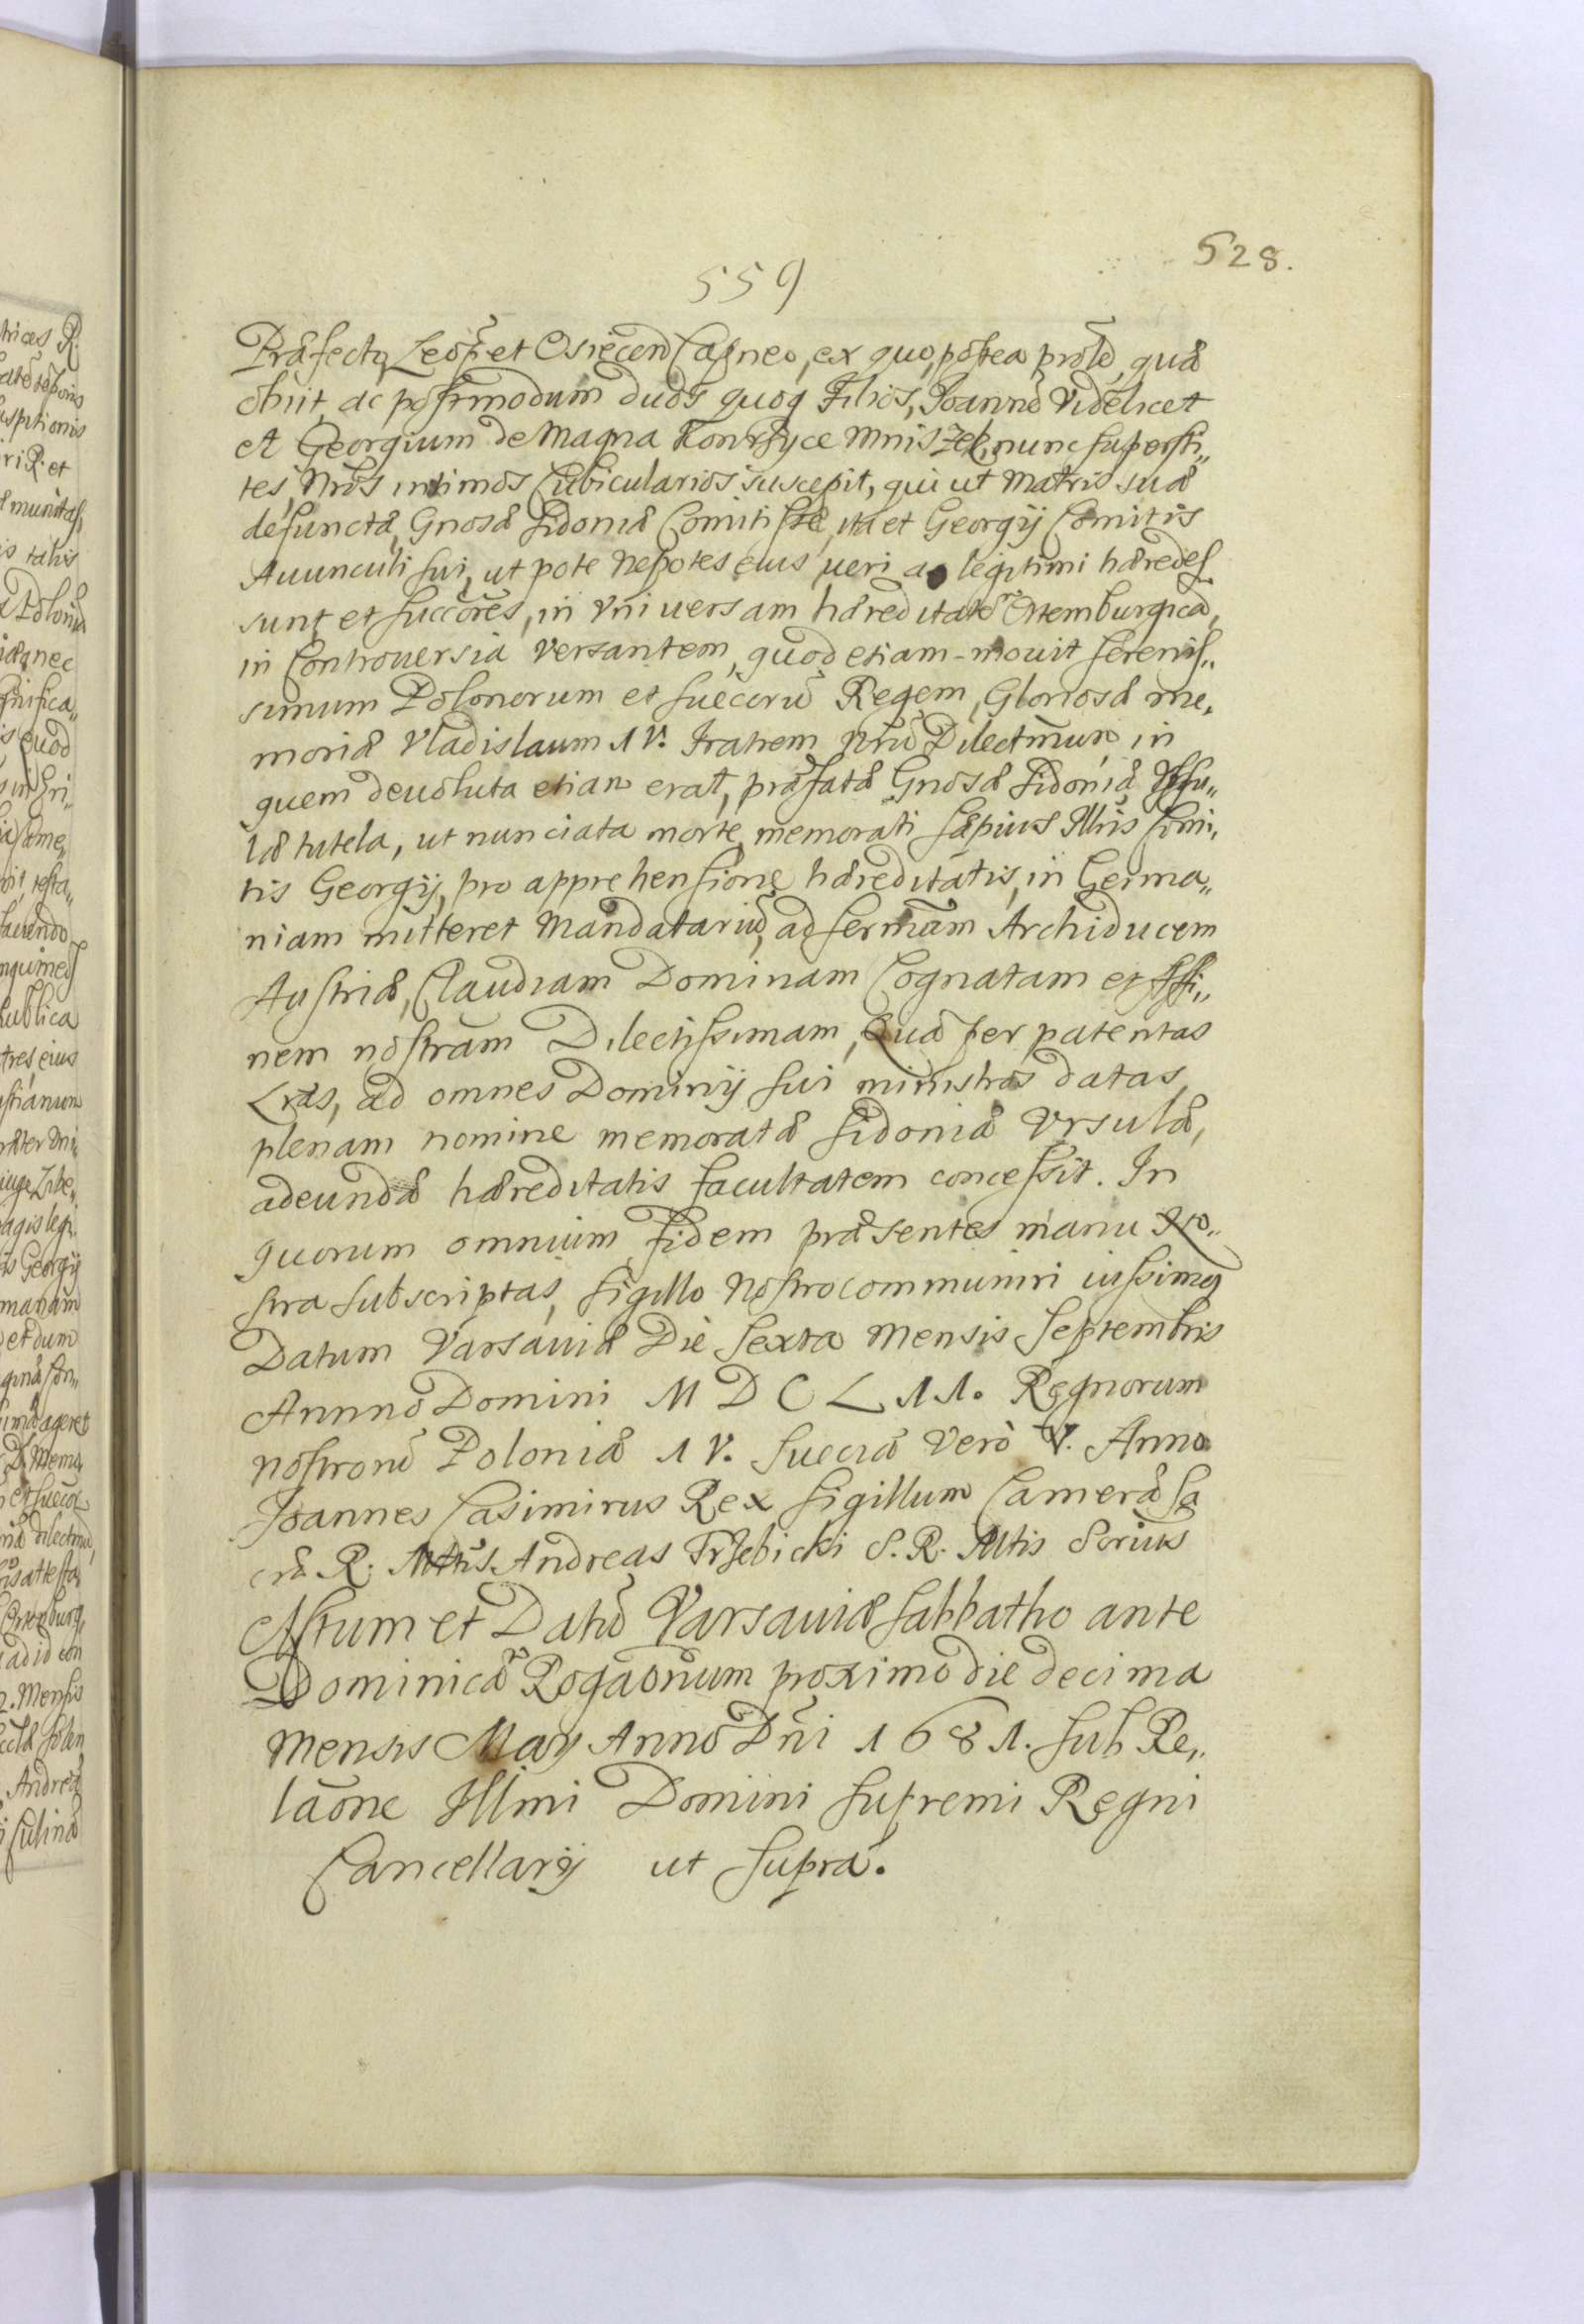 528.
559
Præfecto Leop. et Osiecen Cagneo, ex quo, postea prolẽ, quæ
obiit, ac postmodum duos quoq Filios, Joannẽ Videlicet
et Georgium de Magna Konczyce Mniszek, nunc supersti„
tes, Nrõs intimos Cubicularios suscepit, qui ut Matris suæ
defunctæ, Gnosæ Sidoniæ Comitissæ, ita et Georgij Comitis
Auunculi sui, ut pote Nepotes eius ueri ac legitimi hæredes
sunt et succõres, in Vniuersam hæreditatẽ Ortemburgicã,
in Controuersia Versantem, quod etiam mouit Serenis„
simum Polonorum et Suecorũ Regem, Gloriosæ me„
moriæ Vladislaum IV. Fratrem Nrũ Dilectmum, in
quem deuoluta etiam erat, præfatæ Gnosæ Sidoniæ Vrsu„
læ tutela, ut nunciata morte, memorati sæpius Illris Comi„
tis Georgij, pro apprehensione hæreditatis, in Germa„
niam mitteret Mandatariũ, ad Sermam Archiducem
Austriæ, Claudiam Dominam Cognatam et Affi„
nem nostram Dilectissimam, Quæ per patentas
Lrãs, ad omnes Dominij sui ministros datas,
plenam nomine memoratæ Sidoniæ Vrsulæ,
adeundæ hæreditatis facultatem concessit. In
quorum omnium Fidem præsentes manu No„
stra subscriptas, Sigillo Nostro communiri iussimq
Datum Varsauiæ Die Sexta Mensis Septembris
Annno Domini M D C L I I. Regnorum
nostrorũ Poloniæ IV. Sueciæ Verò V. Anno
Joannes Casimirus Rex Sigillum Cameræ Sa
cræ R. Mttis Andreas Trzebicki S. R. Mtis Srius
Actum et Datũ Varsauiæ Sabbatho ante
Dominicã Rogãonum proximo die decima
Mensis Maij Anno Dñi 1681. Sub Re„
lãone Illmi Domini Supremi Regni
Cancellarij ut Supra.